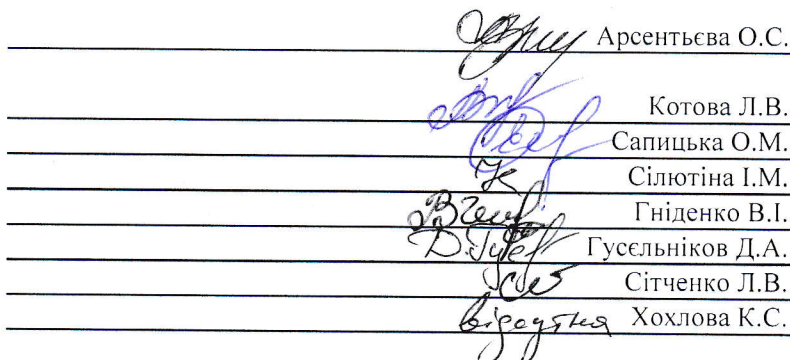 Арсентьєва О.С.
Котова Л.В.
Сапицька О.М.
Сілютіна І.М.
Гніденко В.І.
Гусєльніков Д.А.
Сітченко Л.В.
відсутня Хохлова К.С.